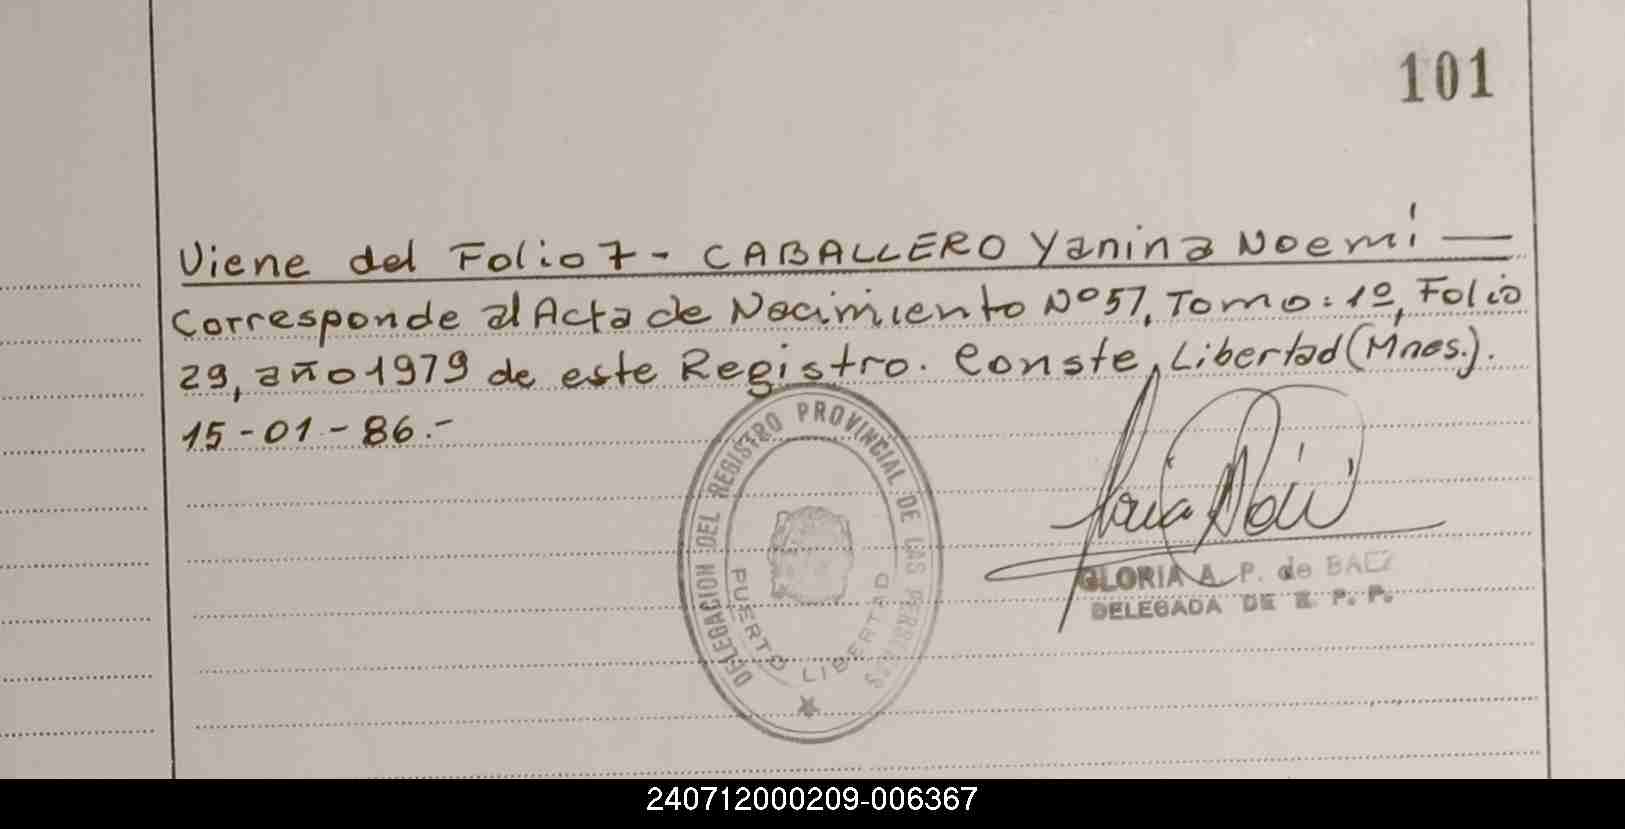 101
Viene del Folio 7 - CABALLERO Yanina Noemí —
Corresponde al Acta de Nacimiento Nº 57, Tomo: 1º, Folio
29, año 1979 de este Registro. Conste, Libertad (Mnes.).
15-01-86.-
DELEGACION DEL REGISTRO PROVINCIAL DE LAS PERSONAS
PUERTO LIBERTAD
GLORIA A. P. de BAEZ
DELEGADA DE R. P. P.
240712000209-006367